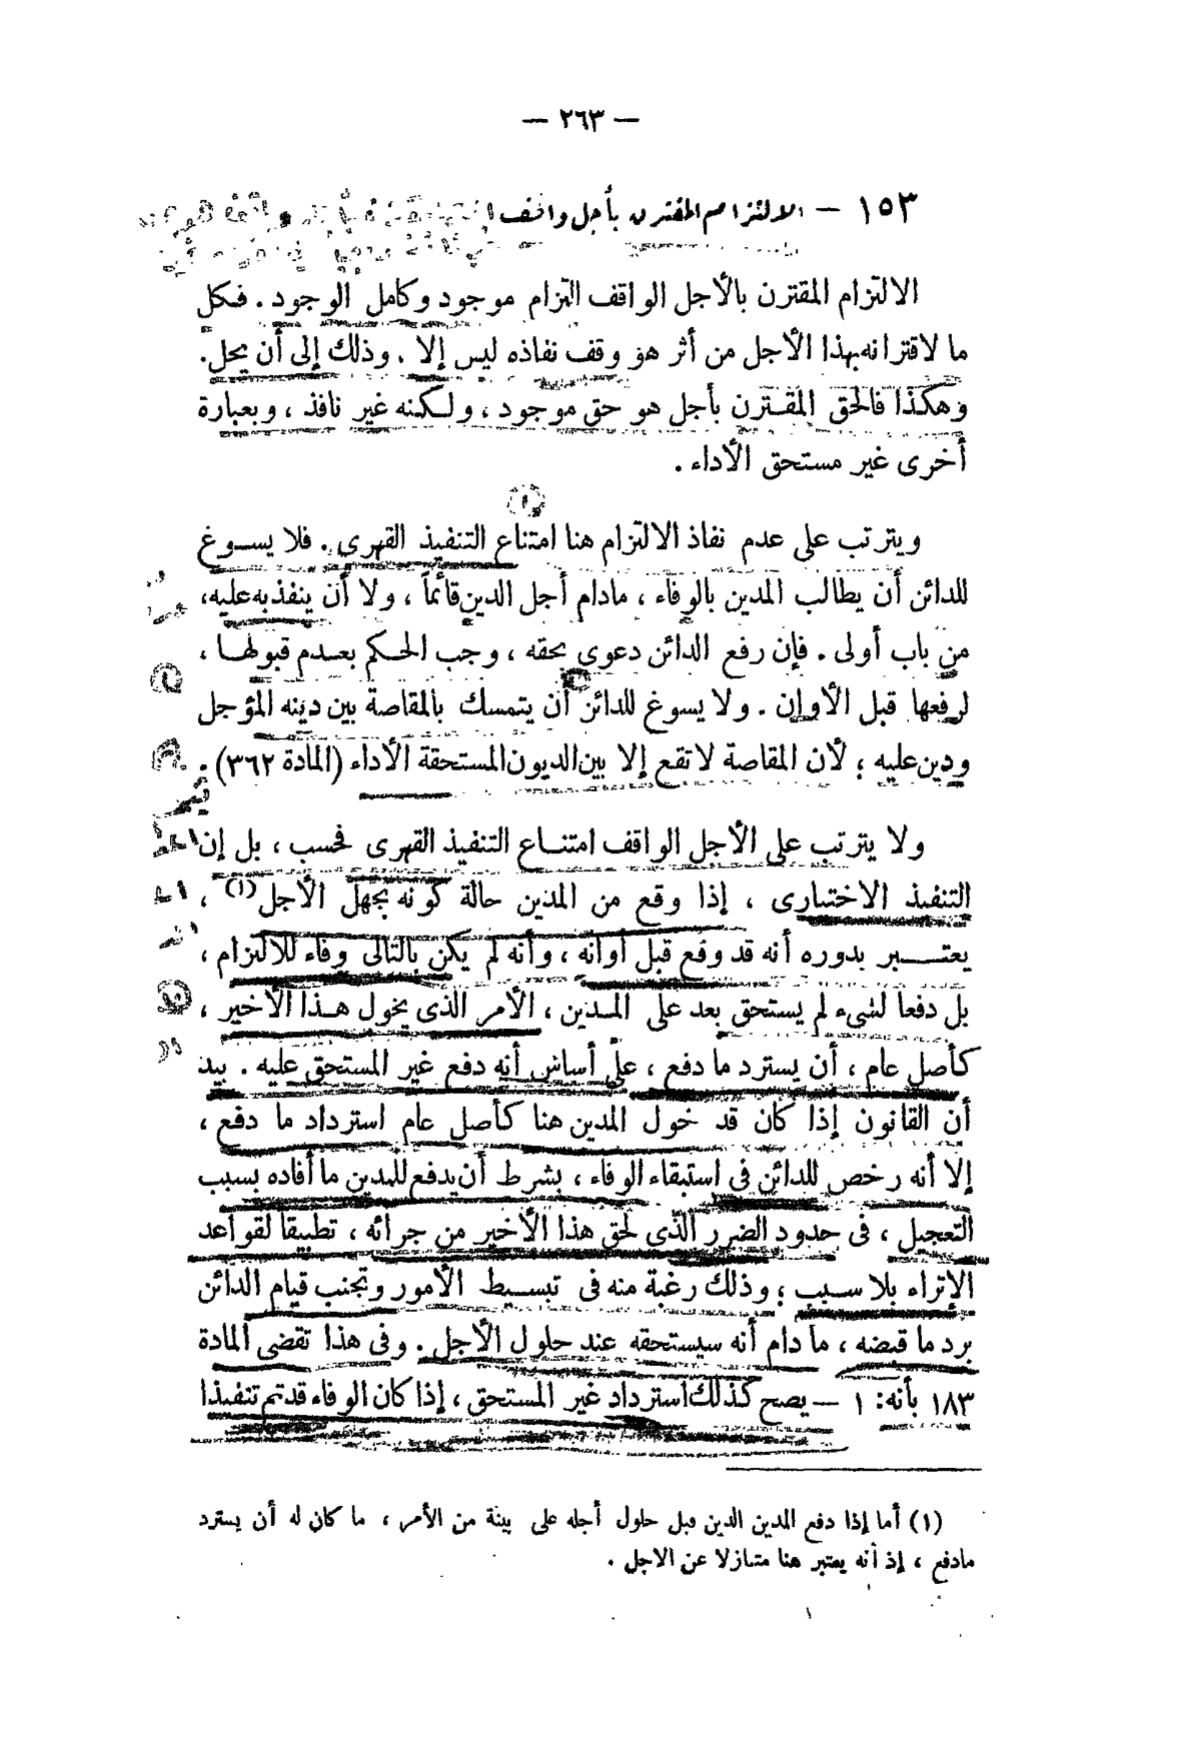 — ٢٦٣ —
١٥٣ — الالتزام المقترن بأجل واقف
الالتزام المقترن بالأجل الواقف التزام موجود وكامل الوجود . فكل
ما لاقترانه بهذا الأجل من أثر هو وقف نفاذه ليس إلا . وذلك إلى أن يحل .
وهكذا فالحق المقترن بأجل هو حق موجود ، ولكنه غير نافذ ، وبعبارة
أخرى غير مستحق الأداء .
ويترتب على عدم نفاذ الالتزام هنا امتناع التنفيذ القهرى . فلا يسوغ
للدائن أن يطالب المدين بالوفاء ، مادام أجل الدين قائماً ، ولا أن ينفذ به عليه ،
من باب أولى . فإن رفع الدائن دعوى بحقه ، وجب الحكم بعدم قبولها ،
لرفعها قبل الأوان . ولا يسوغ للدائن أن يتمسك بالمقاصة بين دينه المؤجل
ودين عليه ؛ لأن المقاصة لا تقع إلا بين الديون المستحقة الأداء (المادة ٣٦٢) .
ولا يترتب على الأجل الواقف امتناع التنفيذ القهرى فحسب ، بل إن
التنفيذ الاختيارى ، إذا وقع من المدين حالة كونه يجهل الأجل (١) ،
يعتبر بدوره أنه قد وقع قبل أوانه ، وأنه لم يكن بالتالى وفاء للالتزام ،
بل دفعا لشىء لم يستحق بعد على المدين ، الأمر الذى يخول هذا الأخير ،
كأصل عام ، أن يسترد ما دفع ، على أساس أنه دفع غير المستحق عليه . بيد
أن القانون إذا كان قد خول المدين هنا كأصل عام استرداد ما دفع ،
إلا أنه رخص للدائن فى استبقاء الوفاء ، بشرط أن يدفع للمدين ما أفاده بسبب
التعجيل ، فى حدود الضرر الذى لحق هذا الأخير من جرائه ، تطبيقا لقواعد
الإثراء بلا سبب ؛ وذلك رغبة منه فى تبسيط الأمور وتجنب قيام الدائن
برد ما قبضه ، ما دام أنه سيستحقه عند حلول الأجل . وفى هذا تقضى المادة
١٨٣ بأنه : ١ — يصح كذلك استرداد غير المستحق ، إذا كان الوفاء قد تم تنفيذا
(١) أما إذا دفع المدين الدين قبل حلول أجله على بينة من الأمر ، ما كان له أن يسترد
مادفع ، إذ أنه يعتبر هنا متنازلا عن الاجل .